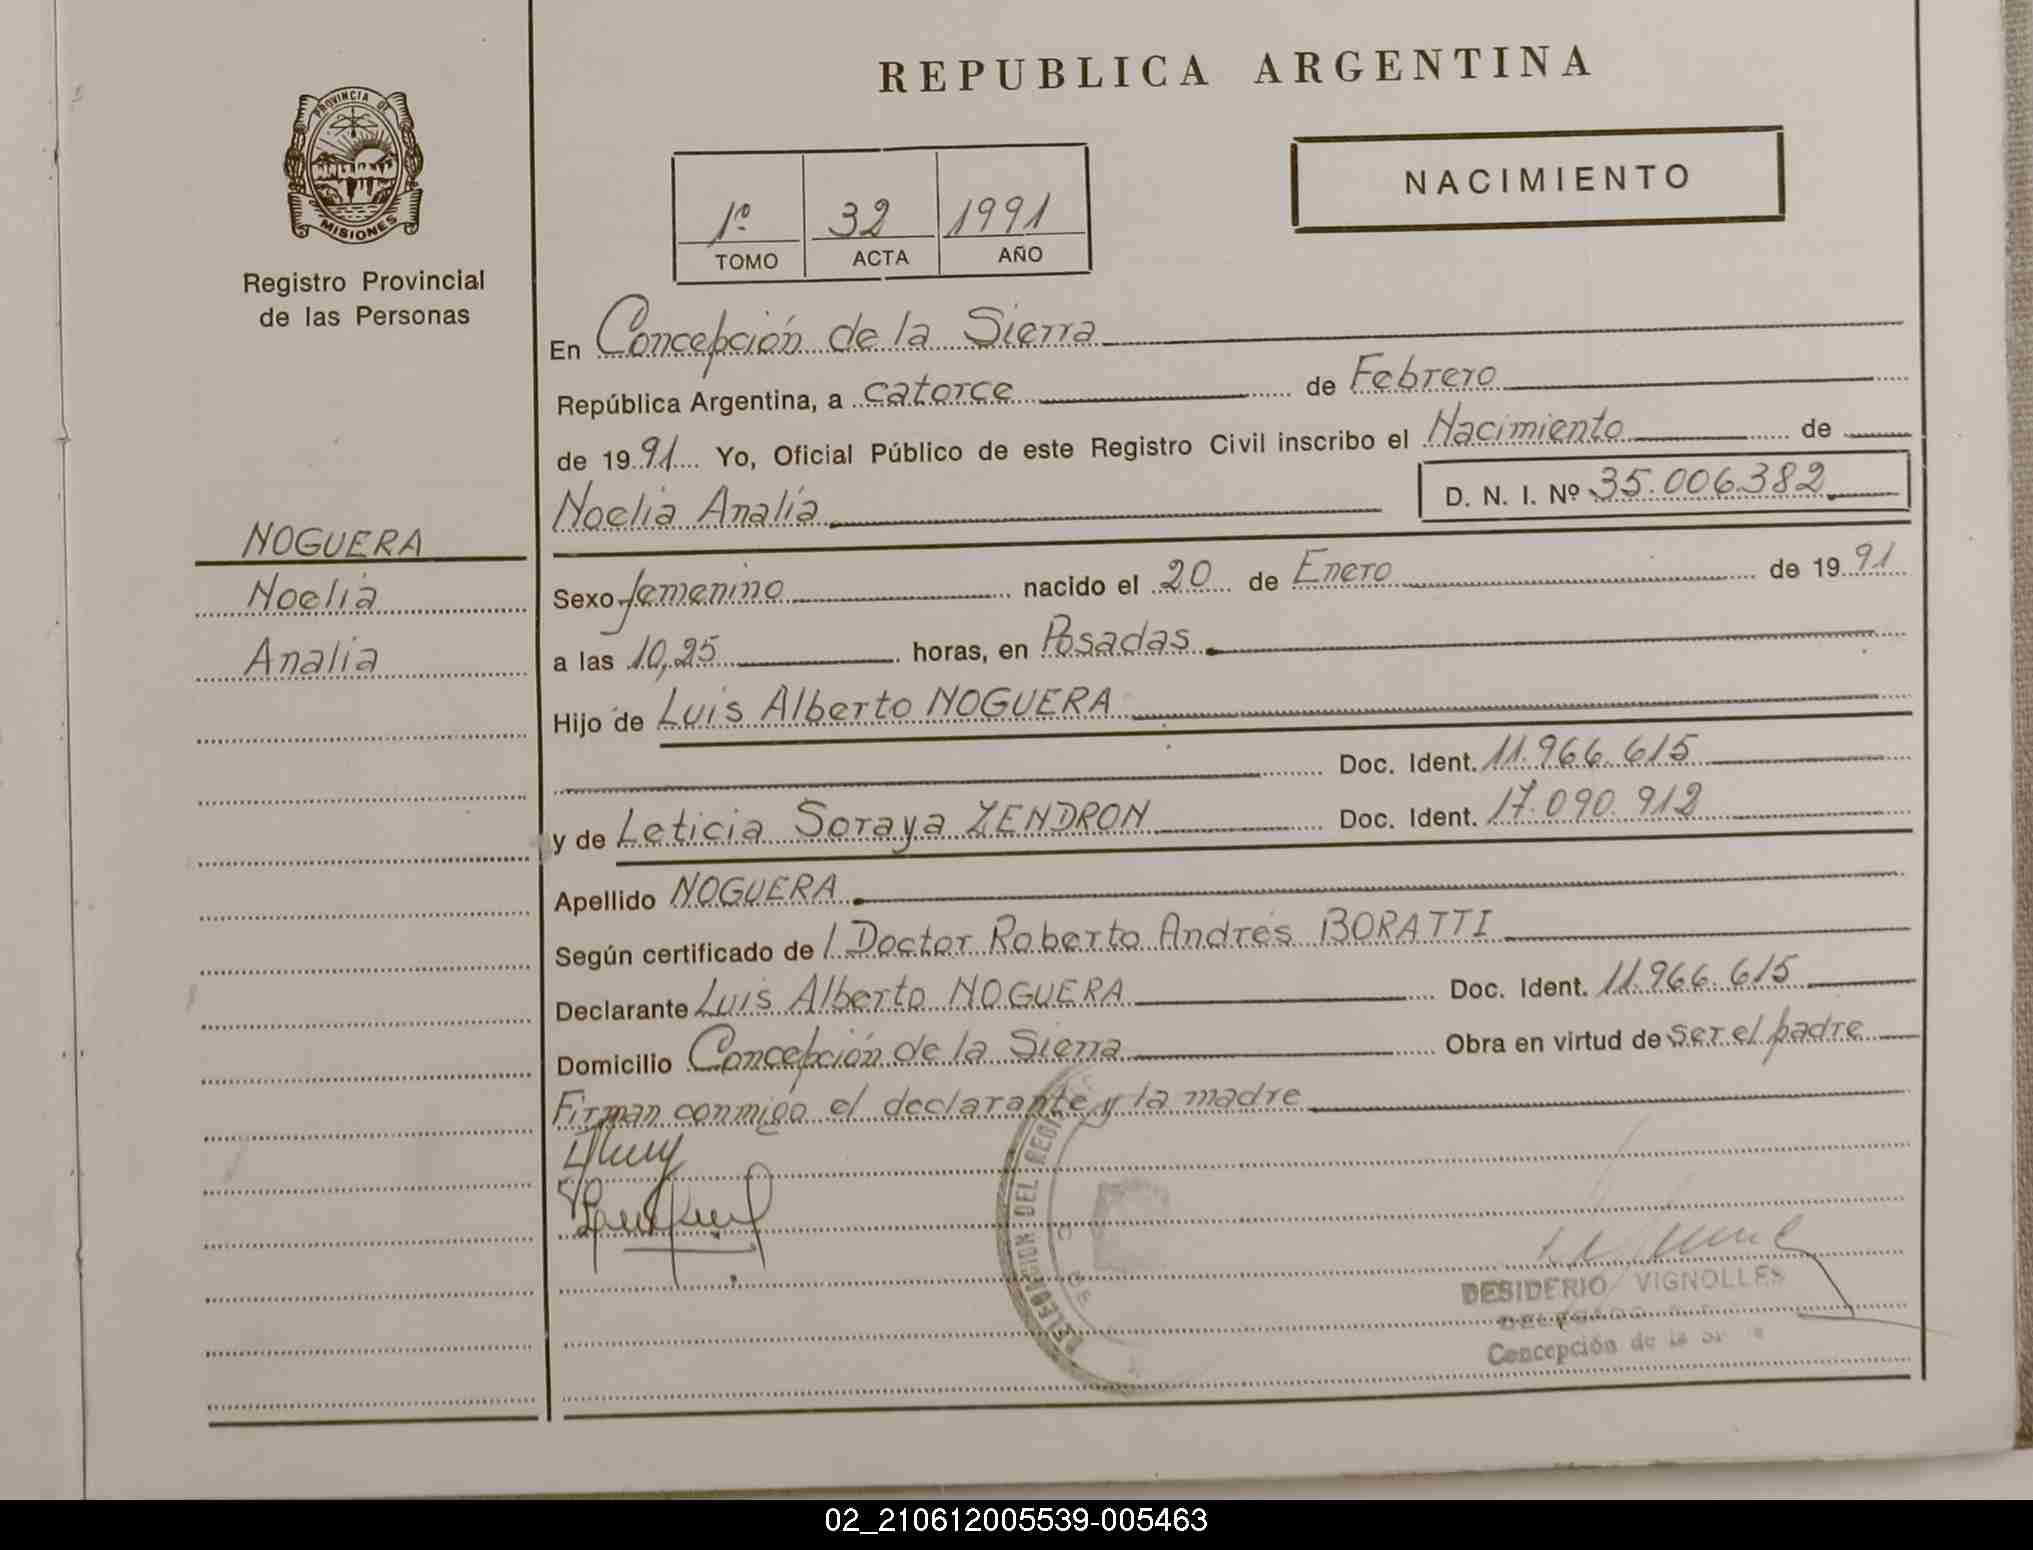 REPUBLICA ARGENTINA
PROVINCIA DE
MISIONES
Registro Provincial
de las Personas
NACIMIENTO
1º 32 1991
TOMO ACTA AÑO
En Concepción de la Sierra
República Argentina, a catorce de Febrero
de 1991 Yo, Oficial Público de este Registro Civil inscribo el Nacimiento de
Noelia Analía D. N. I. Nº 35.006.382
NOGUERA
Noelia
Analía
Sexo femenino nacido el 20 de Enero de 1991
a las 10,25 horas, en Posadas
Hijo de Luis Alberto NOGUERA
Doc. Ident. 11.966.615
y de Leticia Soraya ZENDRON Doc. Ident. 17.090.912
Apellido NOGUERA
Según certificado de / Doctor Roberto Andrés BORATTI
Declarante Luis Alberto NOGUERA Doc. Ident. 11.966.615
Domicilio Concepción de la Sierra Obra en virtud de ser el padre
Firman conmigo el declarante y la madre
DELEGACION DEL REGI
DESIDERIO VIGNOLLES
DELEGADO
Concepción de la
02_210612005539-005463